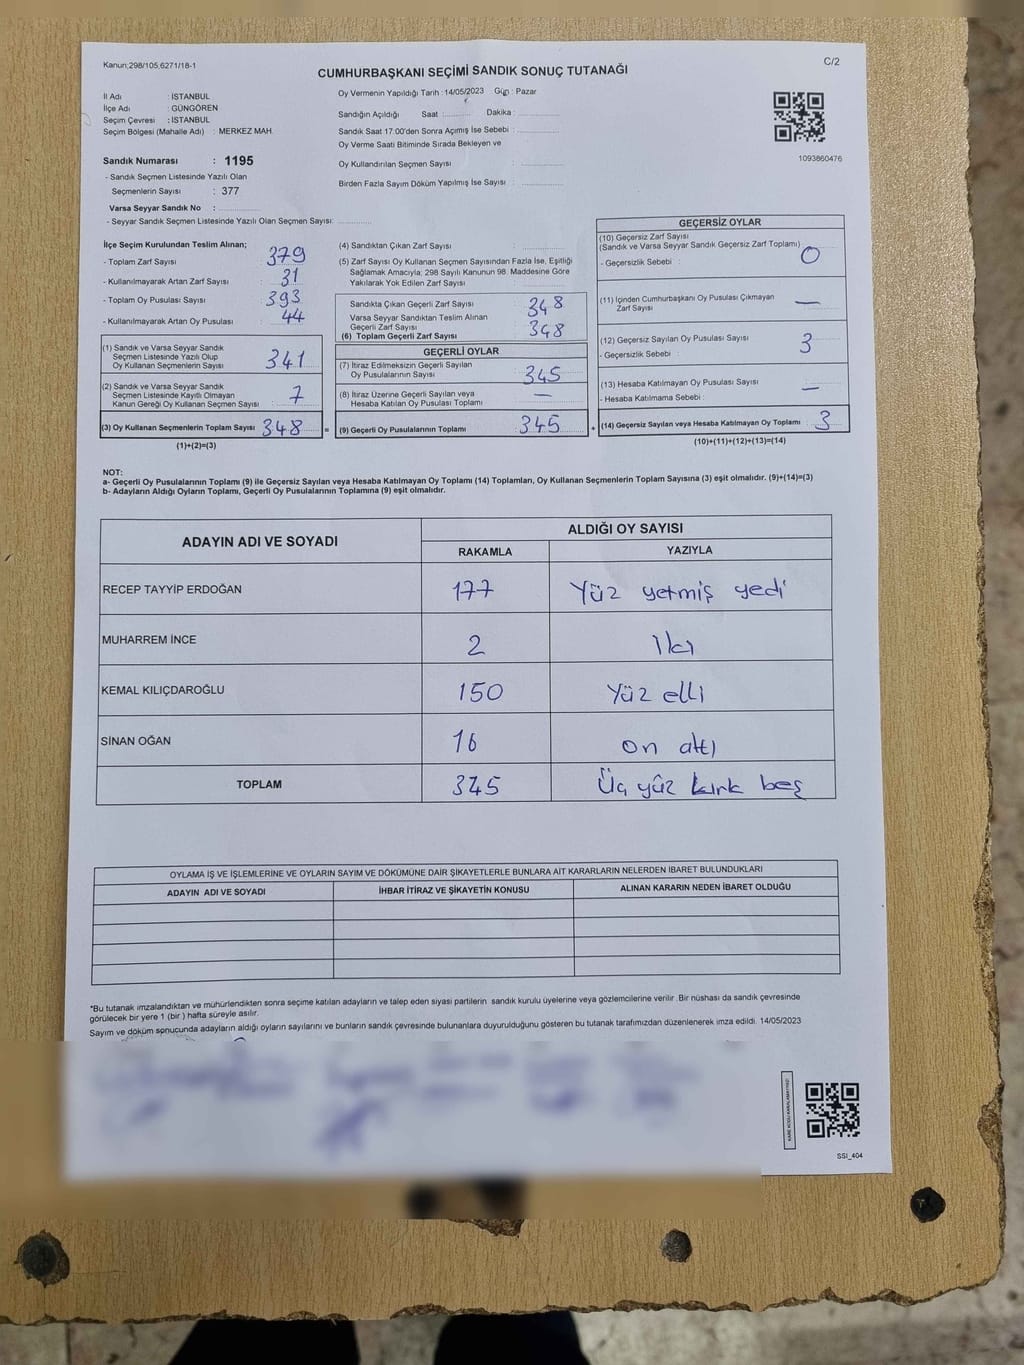 Kanun;298/105,6271/18-1
C/2
CUMHURBAŞKANI SEÇİMİ SANDIK SONUÇ TUTANAĞI
İl Adı : İSTANBUL
İlçe Adı : GÜNGÖREN
Seçim Çevresi : İSTANBUL
Seçim Bölgesi (Mahalle Adı) : MERKEZ MAH.
Sandık Numarası : 1195
- Sandık Seçmen Listesinde Yazılı Olan
Seçmenlerin Sayısı : 377
Varsa Seyyar Sandık No :
- Seyyar Sandık Seçmen Listesinde Yazılı Olan Seçmen Sayısı:
Oy Vermenin Yapıldığı Tarih : 14/05/2023 Gün : Pazar
Sandığın Açıldığı Saat : Dakika :
Sandık Saat 17.00'den Sonra Açımış İse Sebebi :
Oy Verme Saati Bitiminde Sırada Bekleyen ve
Oy Kullandırılan Seçmen Sayısı :
Birden Fazla Sayım Döküm Yapılmış İse Sayısı :
1093860476
İlçe Seçim Kurulundan Teslim Alınan;
- Toplam Zarf Sayısı : 379
- Kullanılmayarak Artan Zarf Sayısı : 31
- Toplam Oy Pusulası Sayısı : 393
- Kullanılmayarak Artan Oy Pusulası : 44
(1) Sandık ve Varsa Seyyar Sandık
Seçmen Listesinde Yazılı Olup
Oy Kullanan Seçmenlerin Sayısı : 341
(2) Sandık ve Varsa Seyyar Sandık
Seçmen Listesinde Kayıtlı Olmayan
Kanun Gereği Oy Kullanan Seçmen Sayısı : 7
(3) Oy Kullanan Seçmenlerin Toplam Sayısı : 348
(1)+(2)=(3)
(4) Sandıktan Çıkan Zarf Sayısı :
(5) Zarf Sayısı Oy Kullanan Seçmen Sayısından Fazla İse, Eşitliği
Sağlamak Amacıyla; 298 Sayılı Kanunun 98. Maddesine Göre
Yakılarak Yok Edilen Zarf Sayısı :
Sandıkta Çıkan Geçerli Zarf Sayısı : 348
Varsa Seyyar Sandıktan Teslim Alınan
Geçerli Zarf Sayısı :
(6) Toplam Geçerli Zarf Sayısı : 348
=
GEÇERLİ OYLAR
(7) İtiraz Edilmeksizin Geçerli Sayılan
Oy Pusulalarının Sayısı : 345
(8) İtiraz Üzerine Geçerli Sayılan veya
Hesaba Katılan Oy Pusulası Toplamı : —
(9) Geçerli Oy Pusulalarının Toplamı : 345
+
GEÇERSİZ OYLAR
(10) Geçersiz Zarf Sayısı
(Sandık ve Varsa Seyyar Sandık Geçersiz Zarf Toplamı) : 0
- Geçersizlik Sebebi :
(11) İçinden Cumhurbaşkanı Oy Pusulası Çıkmayan
Zarf Sayısı : —
(12) Geçersiz Sayılan Oy Pusulası Sayısı : 3
- Geçersizlik Sebebi :
(13) Hesaba Katılmayan Oy Pusulası Sayısı : —
- Hesaba Katılmama Sebebi :
(14) Geçersiz Sayılan veya Hesaba Katılmayan Oy Toplamı : 3
(10)+(11)+(12)+(13)=(14)
NOT:
a- Geçerli Oy Pusulalarının Toplamı (9) ile Geçersiz Sayılan veya Hesaba Katılmayan Oy Toplamı (14) Toplamları, Oy Kullanan Seçmenlerin Toplam Sayısına (3) eşit olmalıdır. (9)+(14)=(3)
b- Adayların Aldığı Oyların Toplamı, Geçerli Oy Pusulalarının Toplamına (9) eşit olmalıdır.
ADAYIN ADI VE SOYADI ALDIĞI OY SAYISI
RAKAMLA YAZIYLA
RECEP TAYYİP ERDOĞAN 177 Yüz yetmiş yedi
MUHARREM İNCE 2 İki
KEMAL KILIÇDAROĞLU 150 Yüz elli
SİNAN OĞAN 16 on altı
TOPLAM 345 Üç yüz kırk beş
OYLAMA İŞ VE İŞLEMLERİNE VE OYLARIN SAYIM VE DÖKÜMÜNE DAİR ŞİKAYETLERLE BUNLARA AİT KARARLARIN NELERDEN İBARET BULUNDUKLARI
ADAYIN ADI VE SOYADI İHBAR İTİRAZ VE ŞİKAYETİN KONUSU ALINAN KARARIN NEDEN İBARET OLDUĞU
*Bu tutanak imzalandıktan ve mühürlendikten sonra seçime katılan adayların ve talep eden siyasi partilerin sandık kurulu üyelerine veya gözlemcilerine verilir. Bir nüshası da sandık çevresinde
görülecek bir yere 1 (bir) hafta süreyle asılır.
Sayım ve döküm sonucunda adayların aldığı oyların sayılarını ve bunların sandık çevresinde bulunanlara duyurulduğunu gösteren bu tutanak tarafımızdan düzenlenerek imza edildi. 14/05/2023
KARE KODU KARALAMAYINIZ!
SSI_404